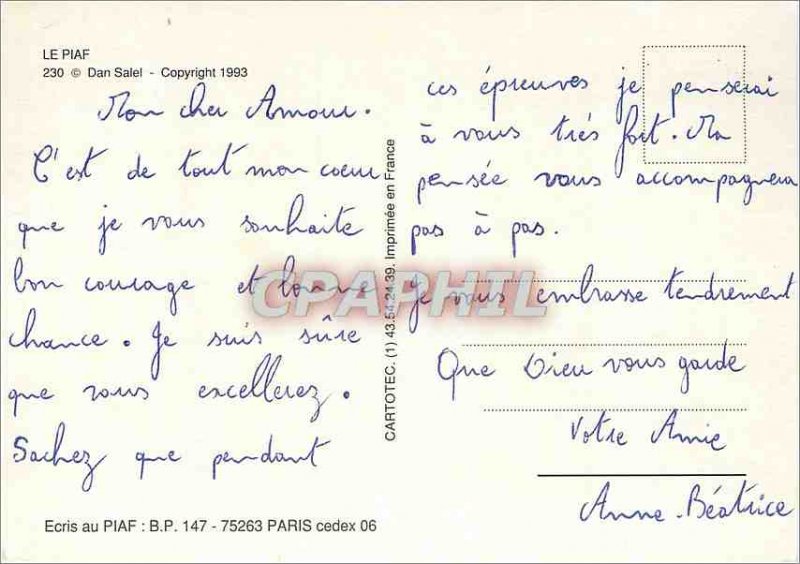 LE PIAF
230 © Dan Salel - Copyright 1993
Mon cher Amour.
C'est de tout mon coeur
que je vous souhaite
bon courage et bonne
chance. Je suis sûre
que vous excellerez.
Sachez que pendant
ces épreuves je penserai
à vous très fort. Ma
pensée vous accompagnera
pas à pas.
Je vous embrasse tendrement
Que Dieu vous garde
Votre Amie
Anne-Béatrice
CARTOTEC. (1) 43.54.24.39. Imprimée en France
Ecris au PIAF : B.P. 147 - 75263 PARIS cedex 06
CPAPHIL